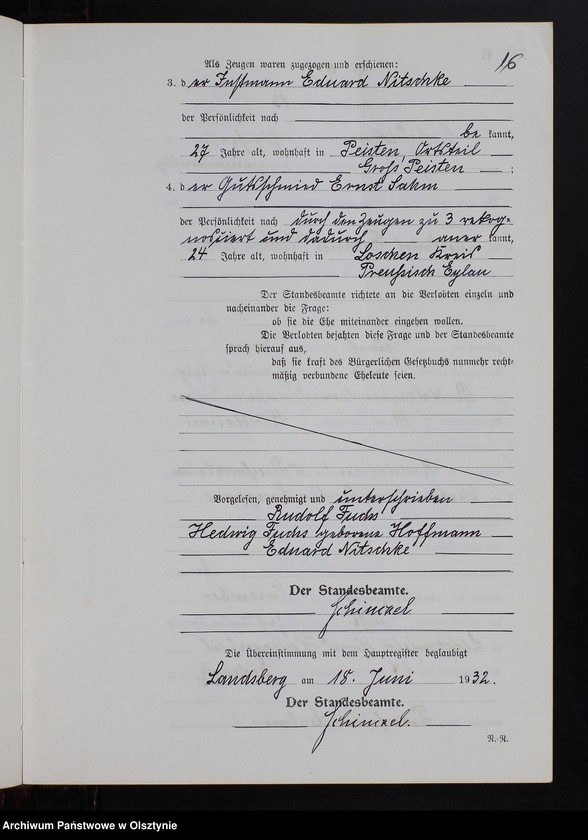 16
Als Zeugen waren zugezogen und erschienen:
3. der Instmann Eduard Nitschke
der Persönlichkeit nach
bekannt,
27 Jahre alt, wohnhaft in Peisten, Ortsteil
Groß Peisten ;
4. der Gutsschmied Ernst Sahm
der Persönlichkeit nach durch den Zeugen zu 3 rekog-
nosziert und dadurch anerkannt,
24 Jahre alt, wohnhaft in Loschen Kreis
Preußisch Eylau
Der Standesbeamte richtete an die Verlobten einzeln und
nacheinander die Frage:
ob sie die Ehe miteinander eingehen wollen.
Die Verlobten bejahten diese Frage und der Standesbeamte
sprach hierauf aus,
daß sie kraft des Bürgerlichen Gesetzbuchs nunmehr recht-
mäßig verbundene Eheleute seien.
Vorgelesen, genehmigt und unterschrieben
Rudolf Fuchs
Hedwig Fuchs geborene Hoffmann
Eduard Nitschke
Der Standesbeamte.
Schinckel
Die Übereinstimmung mit dem Hauptregister beglaubigt
Landsberg am 18. Juni 1932.
Der Standesbeamte.
Schinckel.
R.-R.
Archiwum Państwowe w Olsztynie